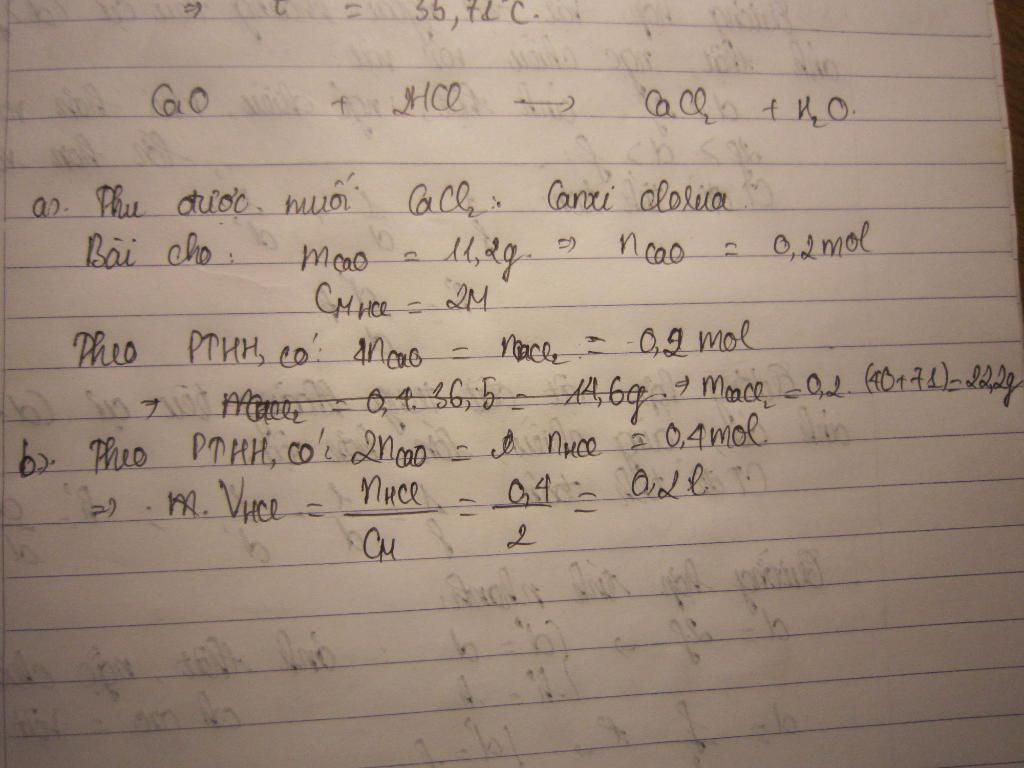 ⇒ t = 35,71°C.
CaO + 2HCl ⟶ CaCl₂ + H₂O.
a). Thu được muối CaCl₂: Canxi clorua.
Bài cho: mCaO = 11,2g. ⇒ nCaO = 0,2mol
CM HCl = 2M
Theo PTHH, có: 1nCaO = nCaCl₂ = 0,2 mol
→ mCaCl₂ = 0,4. 36,5 = 14,6g. → mCaCl₂ = 0,2. (40+71)=22,2g
b). Theo PTHH, có: 2nCaO = nHCl = 0,4mol.
⇒ VHCl = nHCl / CM = 0,4 / 2 = 0,2 l.